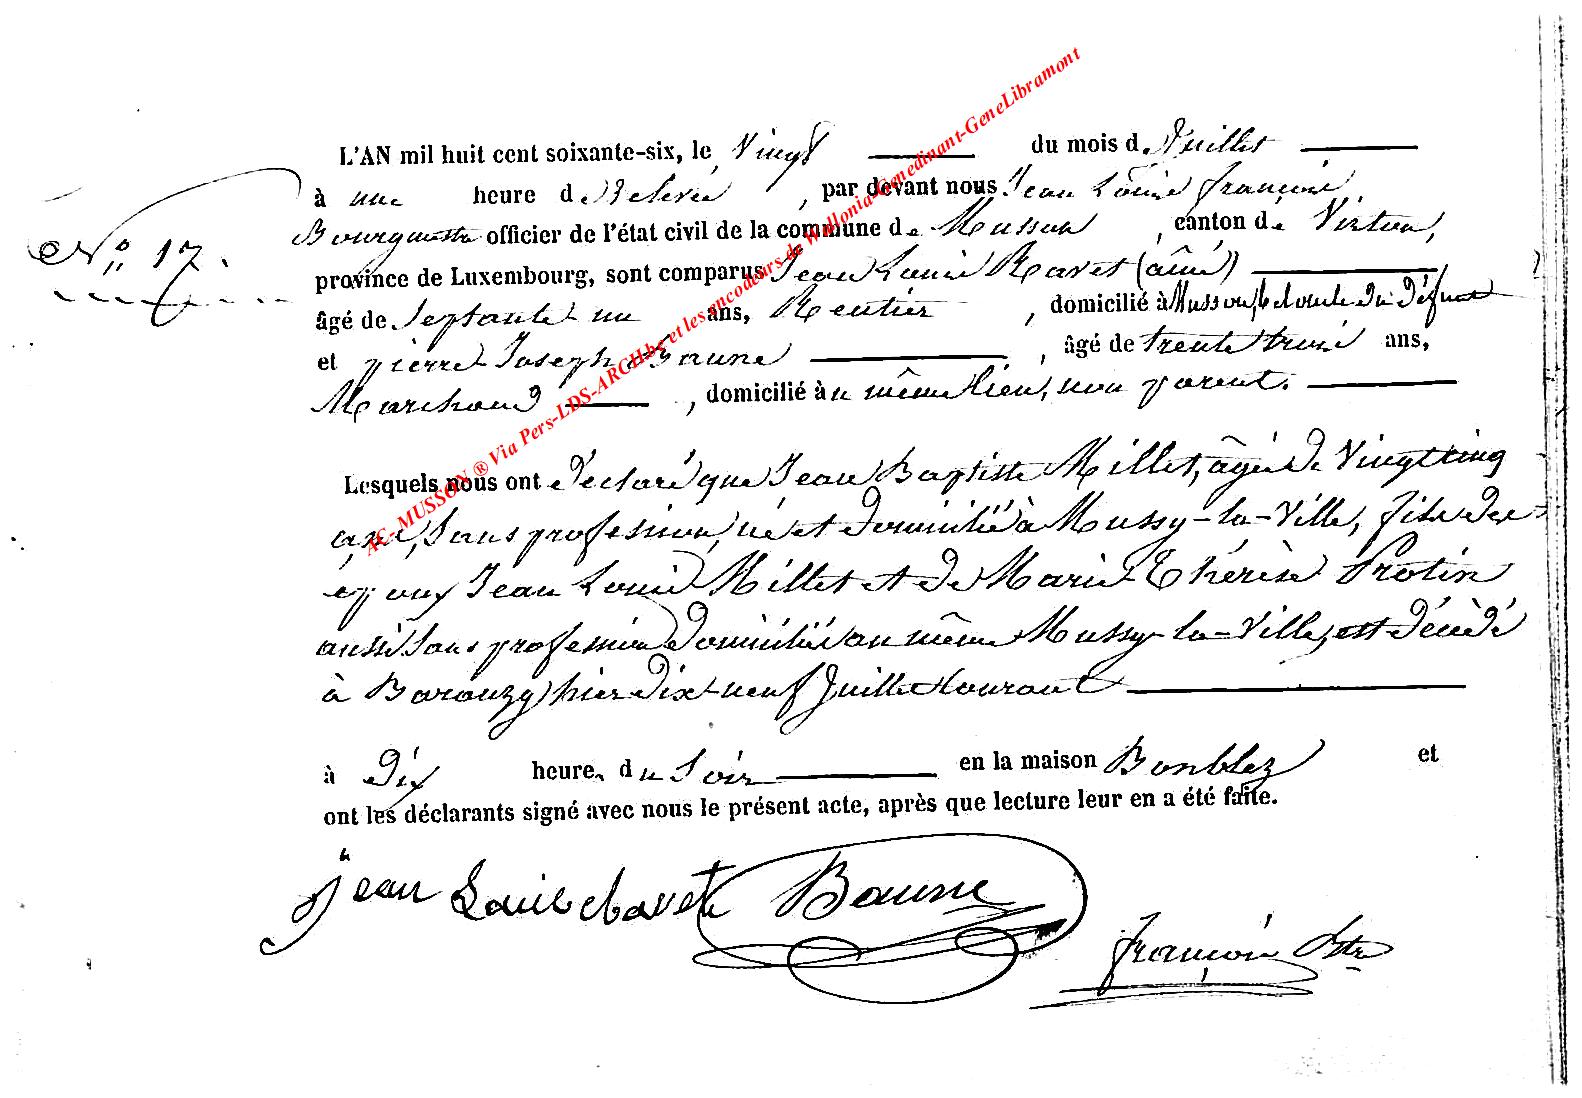 L'AN mil huit cent soixante-six, le Vingt du mois de Juillet
à une heure de Relevée, par devant nous Jean Louis François,
Bourgmestre officier de l'état civil de la commune de Musson, canton de Virton,
N° 17.
province de Luxembourg, sont comparus Jean Louis Ravet (aîné)
âgé de Septante un ans, Rentier, domicilié à Musson, du Défunt
et pierre Joseph Baune, âgé de trente trois ans,
Marchand, domicilié au même lieu, non parent.
Lesquels nous ont déclaré que Jean Baptiste Millet, âgé de Vingt cinq
ans, Sans profession, né et domicilié à Mussy-la-Ville, fils des
époux Jean Louis Millet et de Marie Thérèse Protin
aussi Sans profession domiciliés au même Mussy-la-Ville, est décédé
à Baranzy hier dix neuf Juillet Courant
à Dix heures du Soir en la maison Bonblez et
ont les déclarants signé avec nous le présent acte, après que lecture leur en a été faite.
jean Louis Ravet Baune
François Btre
AC. MUSSON ® Via Pers-LDS-ARCH.be et les encodeurs de Wallonia-Genedinant-GeneLibramont